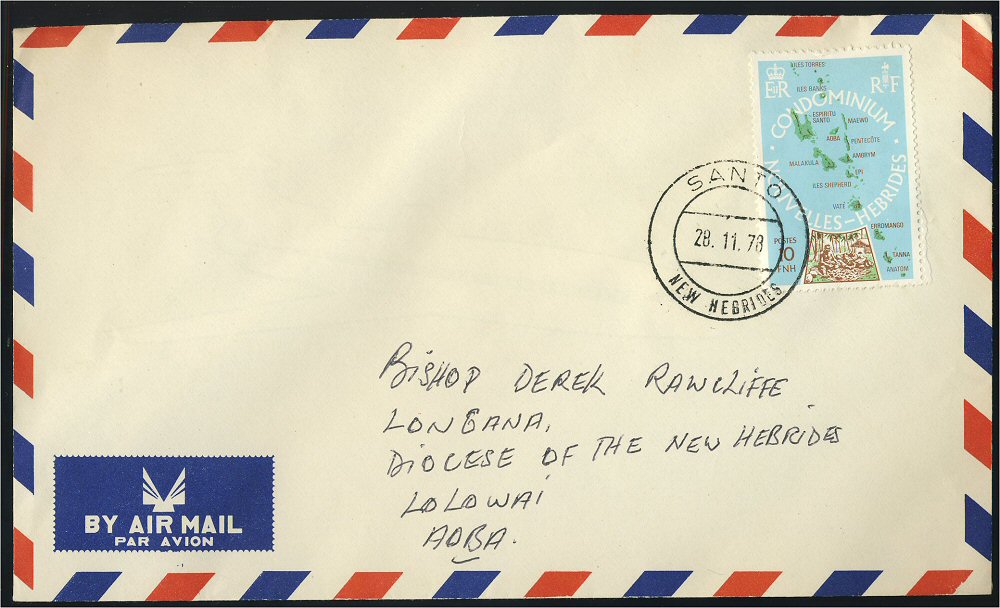 ILES TORRES
E II R
R F
ILES BANKS
CONDOMINIUM
ESPIRITU
SANTO
MAEWO
AOBA
PENTECÔTE
AMBRYM
MALAKULA
EPI
ILES SHEPHERD
VATÉ
NOUVELLES-HEBRIDES
ERROMANGO
POSTES
10
FNH
TANNA
ANATOM
SANTO
28. 11. 78
NEW HEBRIDES
BISHOP DEREK RAWCLIFFE
LONGANA,
DIOCESE OF THE NEW HEBRIDES
LOLOWAI
AOBA.
BY AIR MAIL
PAR AVION